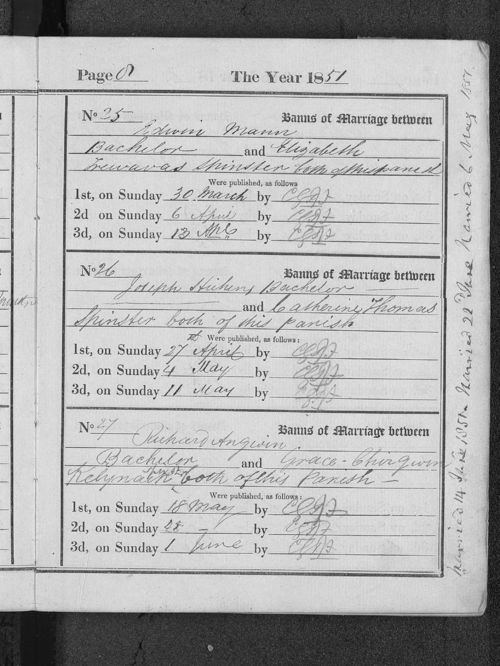 Page 8 The Year 1851
No 25 Banns of Marriage between
Edwin Mann
Bachelor and Elizabeth
Trewavas Spinster both of this parish
Were published, as follows
1st, on Sunday 30 March by
2d, on Sunday 6 April by
3d, on Sunday 13 April by
No 26 Banns of Marriage between
Joseph Hichens Bachelor
and Catherine Thomas
Spinster both of this Parish
Were published, as follows:
1st, on Sunday 27 April by
2d, on Sunday 4 May by
3d, on Sunday 11 May by
No 27 Banns of Marriage between
Richard Angwin
Bachelor and Grace Chirgwin
Kelynack Spinster both of this Parish
Were published, as follows:
1st, on Sunday 18 May by
2d, on Sunday 28 - by
3d, on Sunday 1 June by
Married 14 June 1851 Married 22 June Married 6 May 1851.